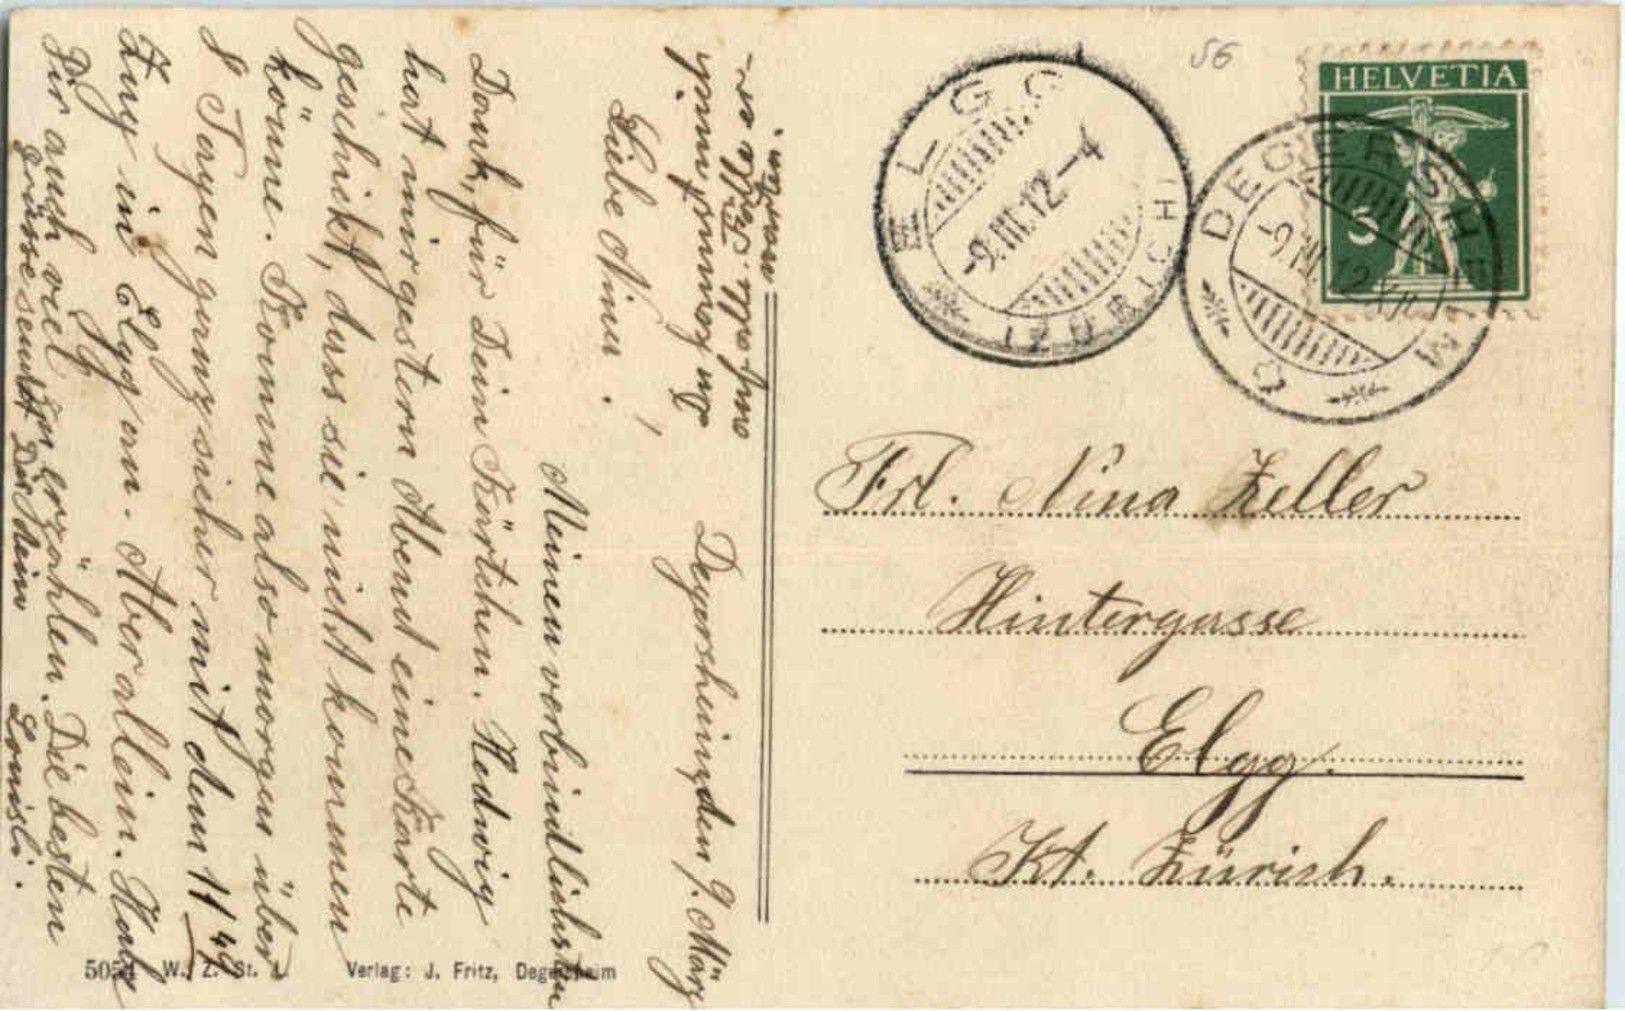 Degersheim, den 9. März
Liebe Nina!
Meinen verbindlichsten
Dank, für Dein Kärtchen. Hedwig
hat mir gestern Abend eine Karte
geschickt, dass sie nicht kommen
könne. Komme also morgen über
8 Tagen ganz sicher mit dem 11 49
Zug in Elgg an. Aber allein. Hab
Dir auch viel zu erzählen. Die besten
Grüsse sendet Dir Dein
Louisli.
56
HELVETIA
5
ELGG
-9.III.12.-4
(ZÜRICH)
DEGERSHEIM
-9.III.12.XII
Frl. Nina Zeller
Hintergasse
Elgg.
Kt. Zürich.
5054 W. Z. St. G. Verlag: J. Fritz, Degersheim